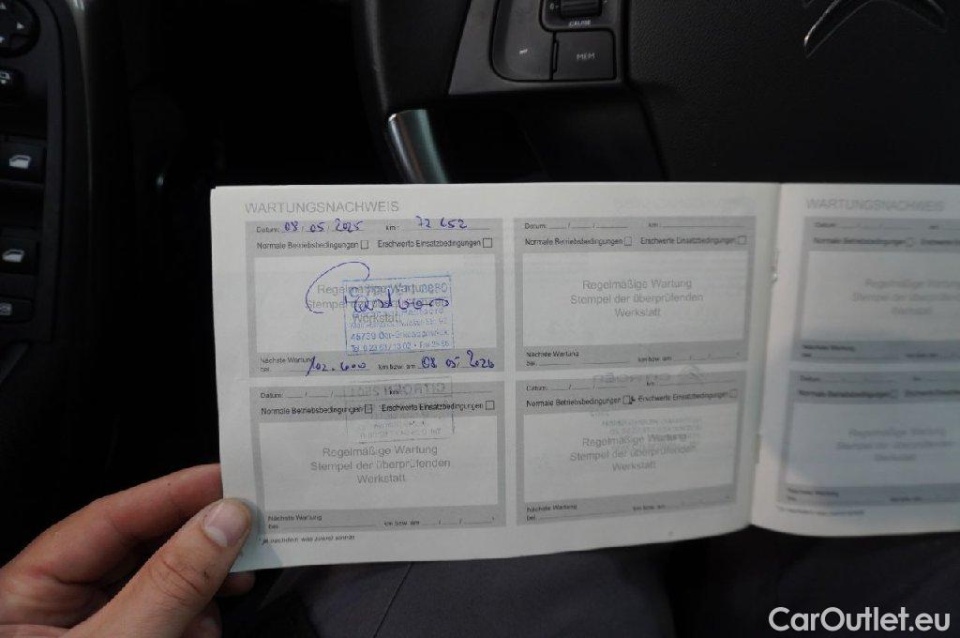 CRUISE
MEM
WARTUNGSNACHWEIS
Datum: 08.05.2025 km: 72 652
Normale Betriebsbedingungen Erschwerte Einsatzbedingungen
Regelmäßige Wartung
Stempel der
Werkstatt
Nächste Wartung
bei: 102.600 km bzw. am 08 05. 2026
Datum: / / km:
Normale Betriebsbedingungen Erschwerte Einsatzbedingungen
Regelmäßige Wartung
Stempel der überprüfenden
Werkstatt
Nächste Wartung
bei: km bzw. am / /
* je nachdem, was zuerst eintritt
Datum: / / km:
Normale Betriebsbedingungen Erschwerte Einsatzbedingungen
Regelmäßige Wartung
Stempel der überprüfenden
Werkstatt
Nächste Wartung
bei: km bzw. am / /
Datum: / / km:
Normale Betriebsbedingungen Erschwerte Einsatzbedingungen
Regelmäßige Wartung
Stempel der überprüfenden
Werkstatt
Nächste Wartung
bei: km bzw. am / /
WARTUNGSNACHWEIS
Datum: / /
Normale Betriebsbedingungen
Regelmäßige Wartung
Stempel der überprüfenden
Werkstatt
Nächste Wartung
bei:
Datum: / /
Normale Betriebsbedingungen
Regelmäßige Wartung
Stempel der überprüfenden
Werkstatt
Nächste Wartung
bei:
CarOutlet.eu